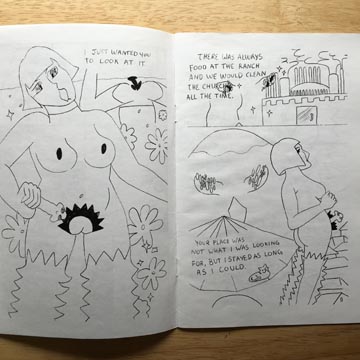 I JUST WANTED YOU
TO LOOK AT IT
THERE WAS ALWAYS
FOOD AT THE RANCH
AND WE WOULD CLEAN
THE CHURCH
ALL THE TIME.
YOUR PLACE WAS
NOT WHAT I WAS LOOKING
FOR, BUT I STAYED AS LONG
AS I COULD.